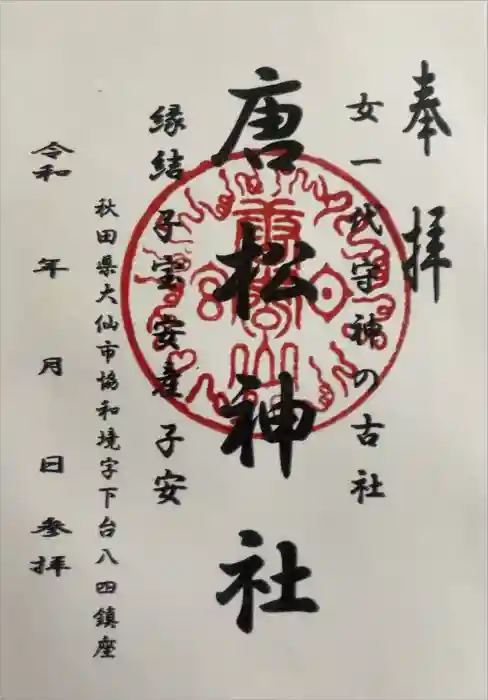 奉拝
女一代守神の古社
唐松神社
縁結 子宝 安産 子安
秋田県大仙市協和境字下台八四鎮座
令和 年 月 日 参拝